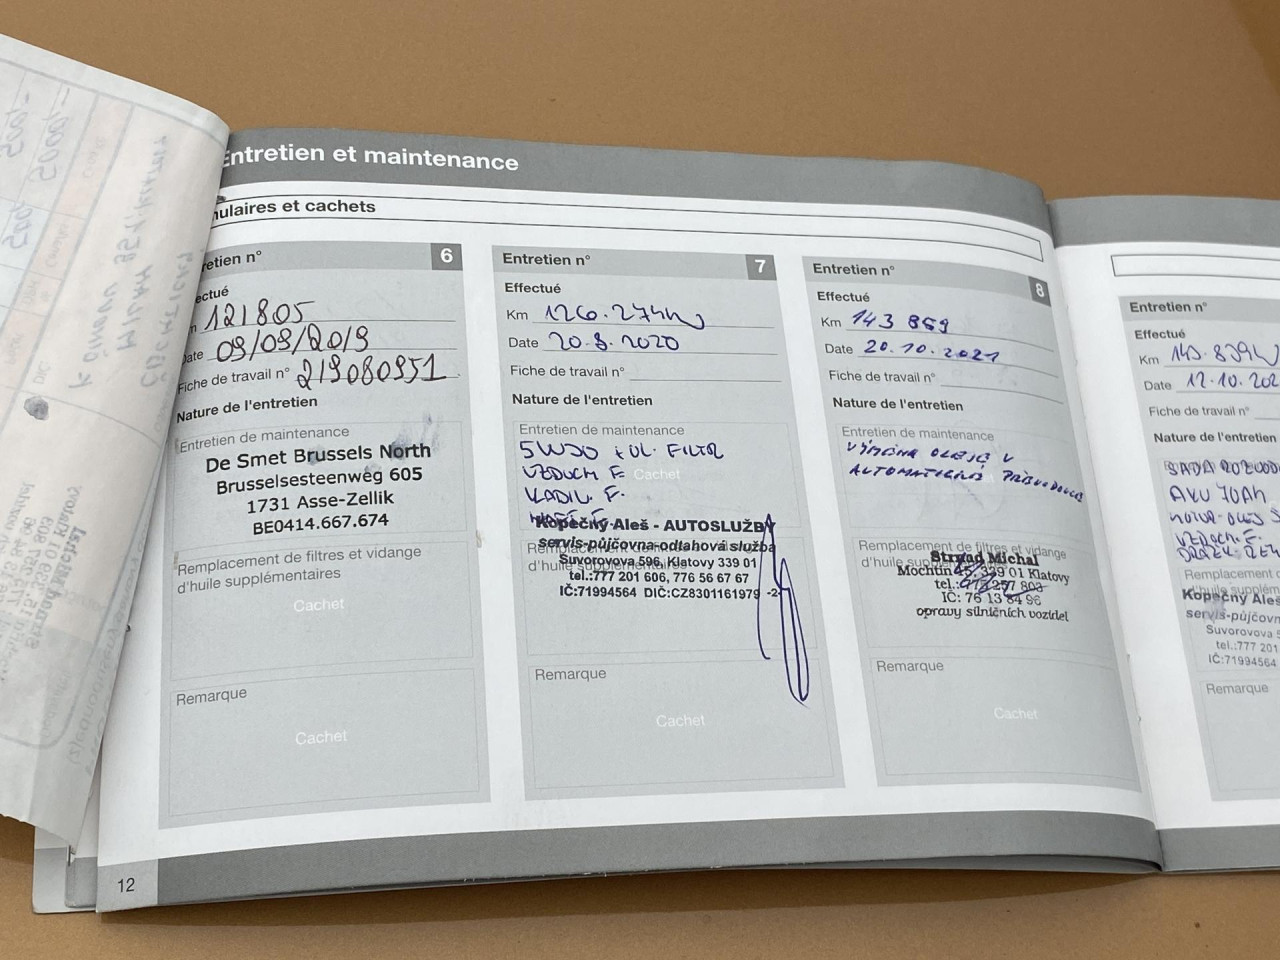 Entretien et maintenance
ulaires et cachets
retien n° 6
ectué
121805
Date 09/09/2019
Fiche de travail n° 219080951
Nature de l'entretien
Entretien de maintenance
De Smet Brussels North
Brusselsesteenweg 605
1731 Asse-Zellik
BE0414.667.674
Remplacement de filtres et vidange
d'huile supplémentaires
Cachet
Remarque
Cachet
Entretien n° 7
Effectué
Km 126.274
Date 20.8.2020
Fiche de travail n°
Nature de l'entretien
Entretien de maintenance
5W30 + OL. FILTR
VZDUCH F. Cachet
KABIN. F.
Kopečný Aleš - AUTOSLUŽBY
servis-půjčovna-odtahová služba
Suvorovova 596, Klatovy 339 01
tel.:777 201 606, 776 56 67 67
IČ:71994564 DIČ:CZ8301161979 -2-
Remarque
Cachet
Entretien n° 8
Effectué
Km 143 859
Date 20.10.2021
Fiche de travail n°
Nature de l'entretien
Entretien de maintenance
VÝMĚNA OLEJE V
AUTOMATICKÉ PŘEVODOVCE
Remplacement de filtres et vidange
Strnad Michal
Mochtín 45, 339 01 Klatovy
IČ: 76 13 84 96
opravy silničních vozidel
Remarque
Cachet
Entretien n°
Effectué
Km 143.839
Date 12.10.202
Fiche de travail n°
Nature de l'entretien
SADA ROZVODŮ
AKU 70Ah
MOTOR-OLEJ
VZDUCH. F.
Remplacement d
Kopečný Aleš
servis-půjčovn
Suvorovova 5
tel.:777 201
IČ:71994564
Remarque
12